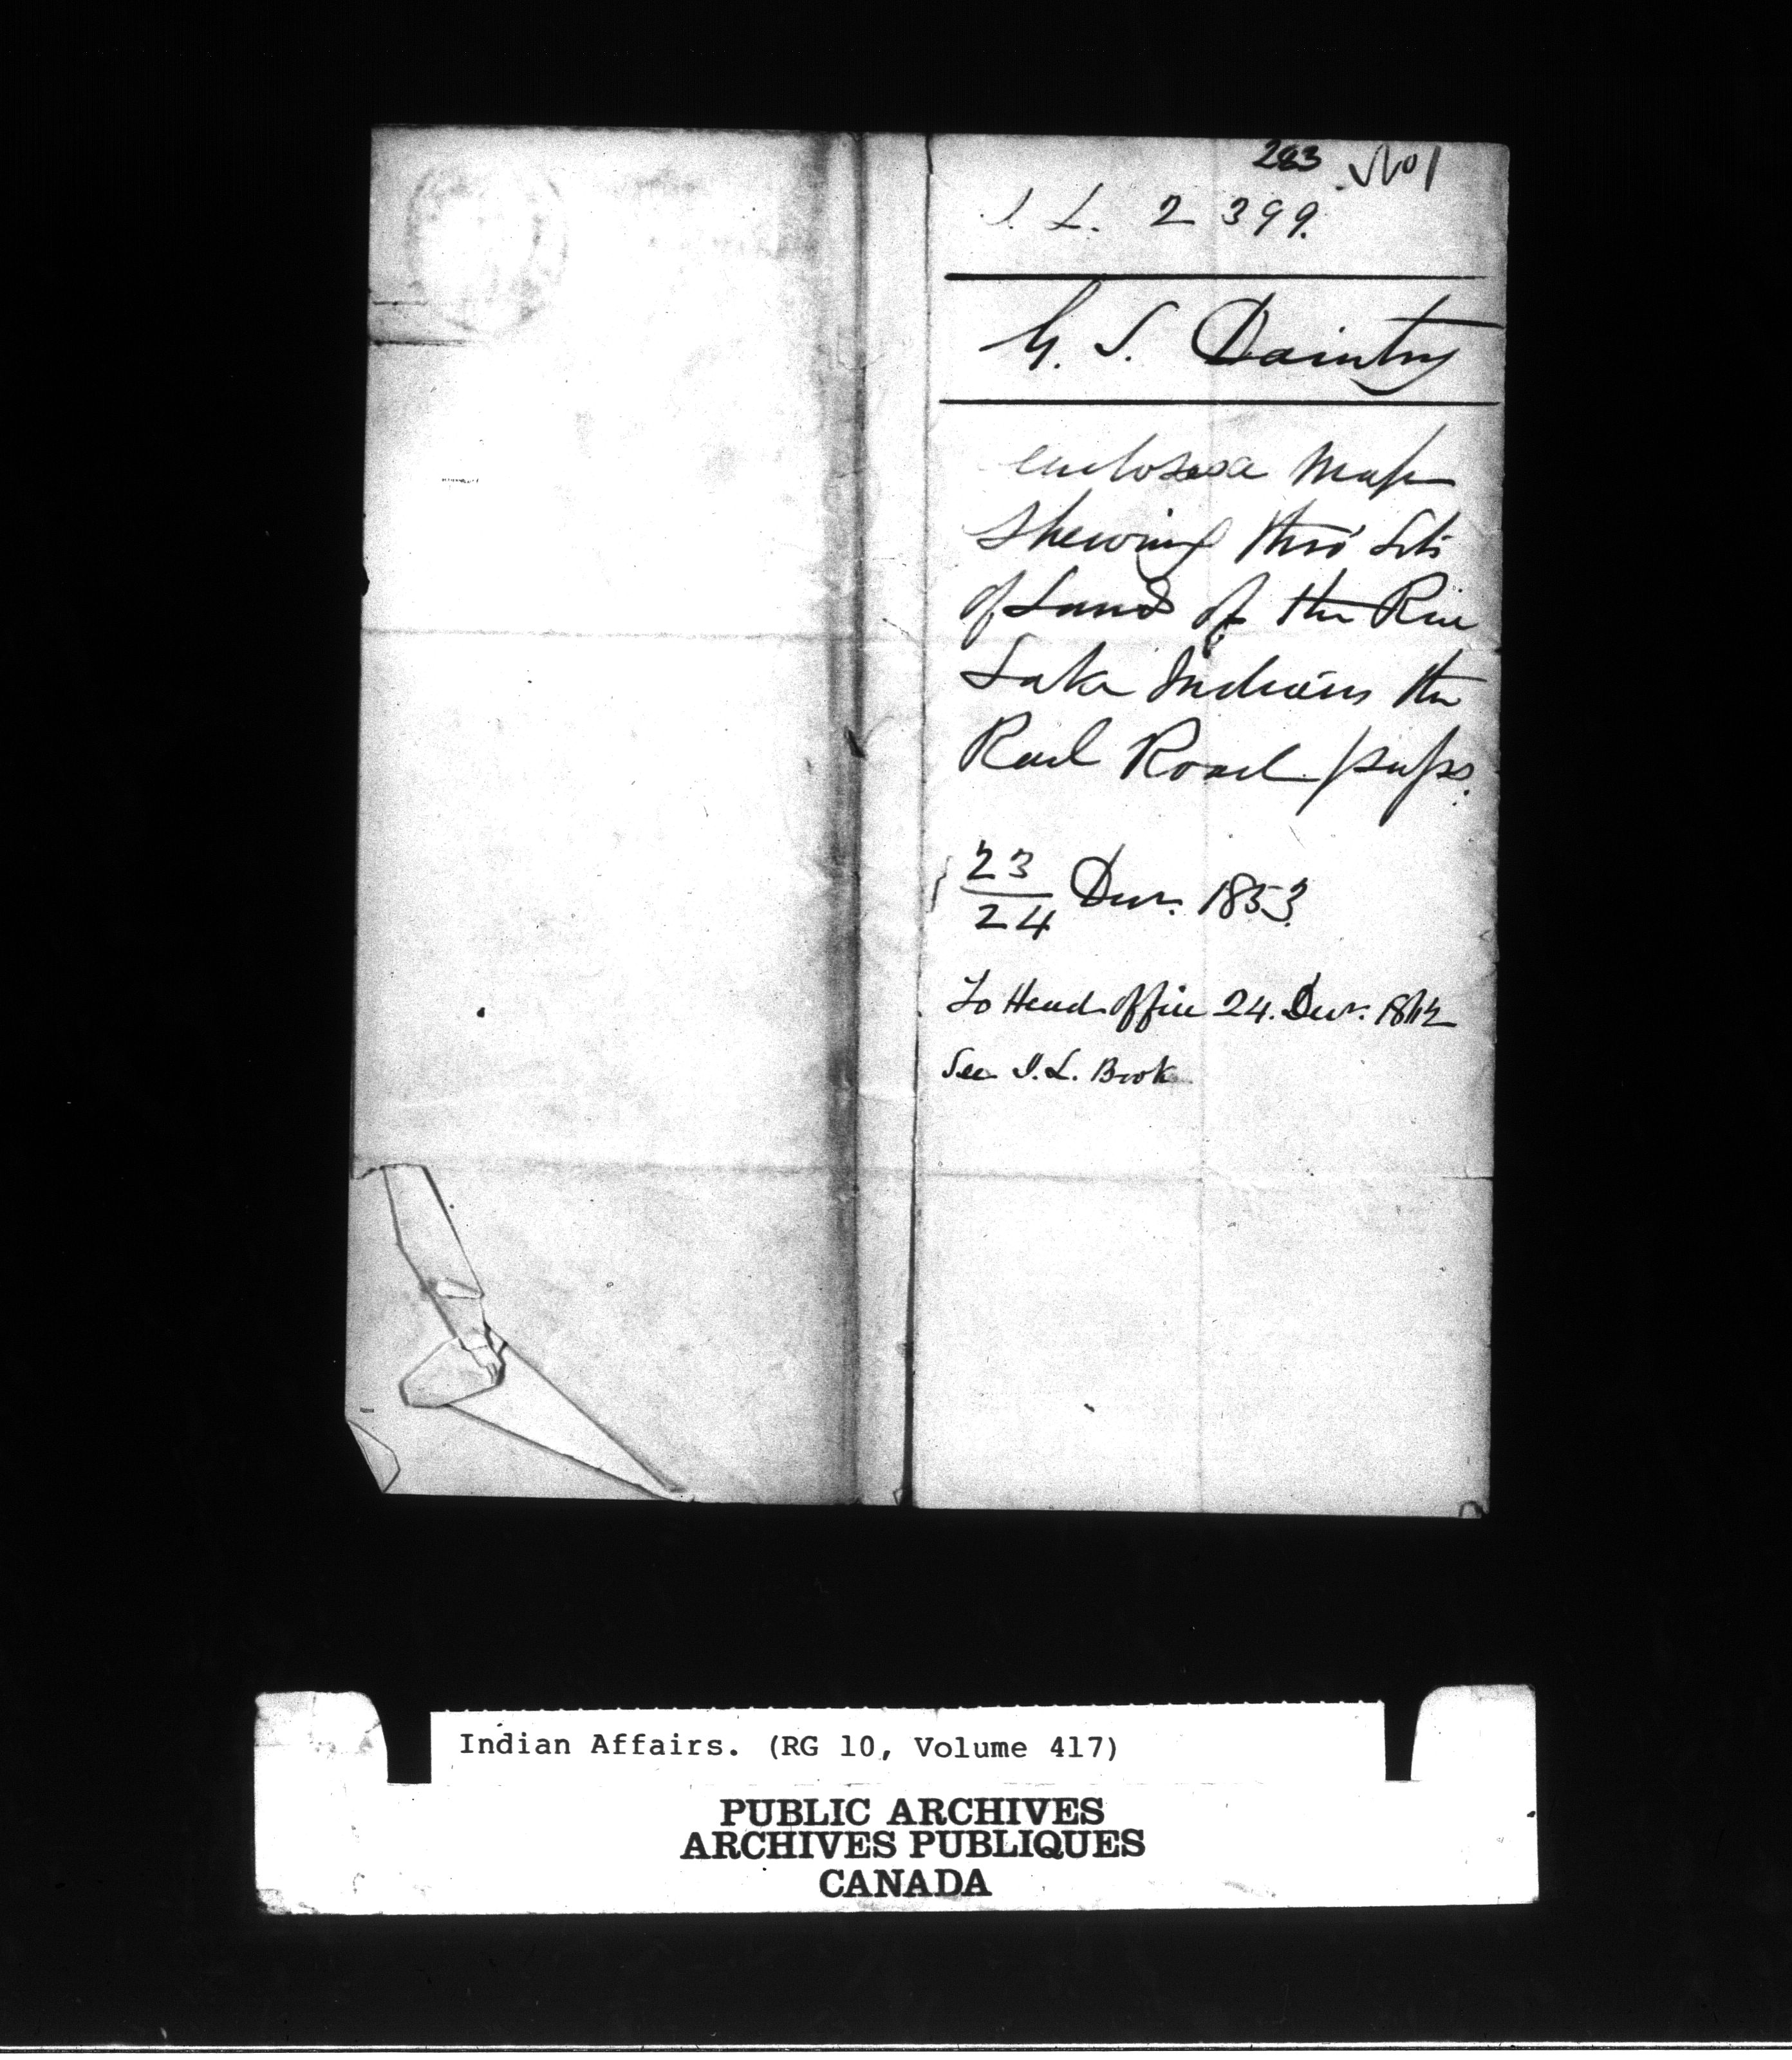 283 No 1
I. L. 2399.
G. S. Daintry
encloses a Map
shewing thro' Lots
of Land of the Rice
Lake Indians the
Rail Road pass.
23
24 Decr. 1853.
To Head Office 24. Decr.
See I. L. Book
Indian Affairs. (RG 10, Volume 417)
PUBLIC ARCHIVES
ARCHIVES PUBLIQUES
CANADA